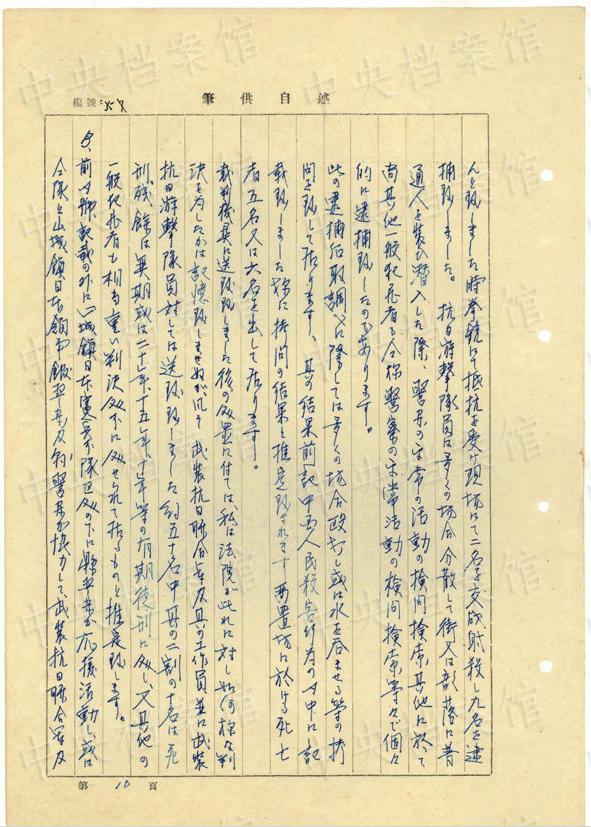 中央档案馆
編號: 
筆供自述
んと致しました時拳銃にて抵抗を受け現場にて二名を交戦射殺し九名を逮
捕致しました。抗日游撃隊員は多くの場合分散して街又は部落に普
通人を装ひ潜入した際、警察の平常の活動の検問検索其他に於て
尚其他一般犯罪者も全様警察の平常活動の検問検索等々で個々
的に逮捕致したのであります。
此の逮捕后取調べに際しては多くの場合殴打し或は水を呑ませる等の拷
問を致して居ります、其の結果前記中国人民殺害行為の中に記
載致しました様に拷問の結果と推定致されます留置場に於ける死亡
者五名又は六名を出して居ります。
裁判機其に送致致しました後の処置に付ては、私は法院が此れに対し如何様な判
決を為したかは記憶致しませぬが凡そ武装抗日聯合軍及其の工作員並に武装
抗日游撃隊員対しては送致致しました約五十名中其の二割の十名は死
刑、残餘は無期或は二十年、十五年、十年等の有期徒刑に処し、又其他の
一般犯罪者も相当重い判決処下に処せられて居るものと推定致します。
前 号記載の外に山城鎮日本憲兵隊区処の下に県警察が応援活動し或は
全隊と山城鎮日本領事館警察及 警察が協力して武装抗日聯合軍及
第 10 頁